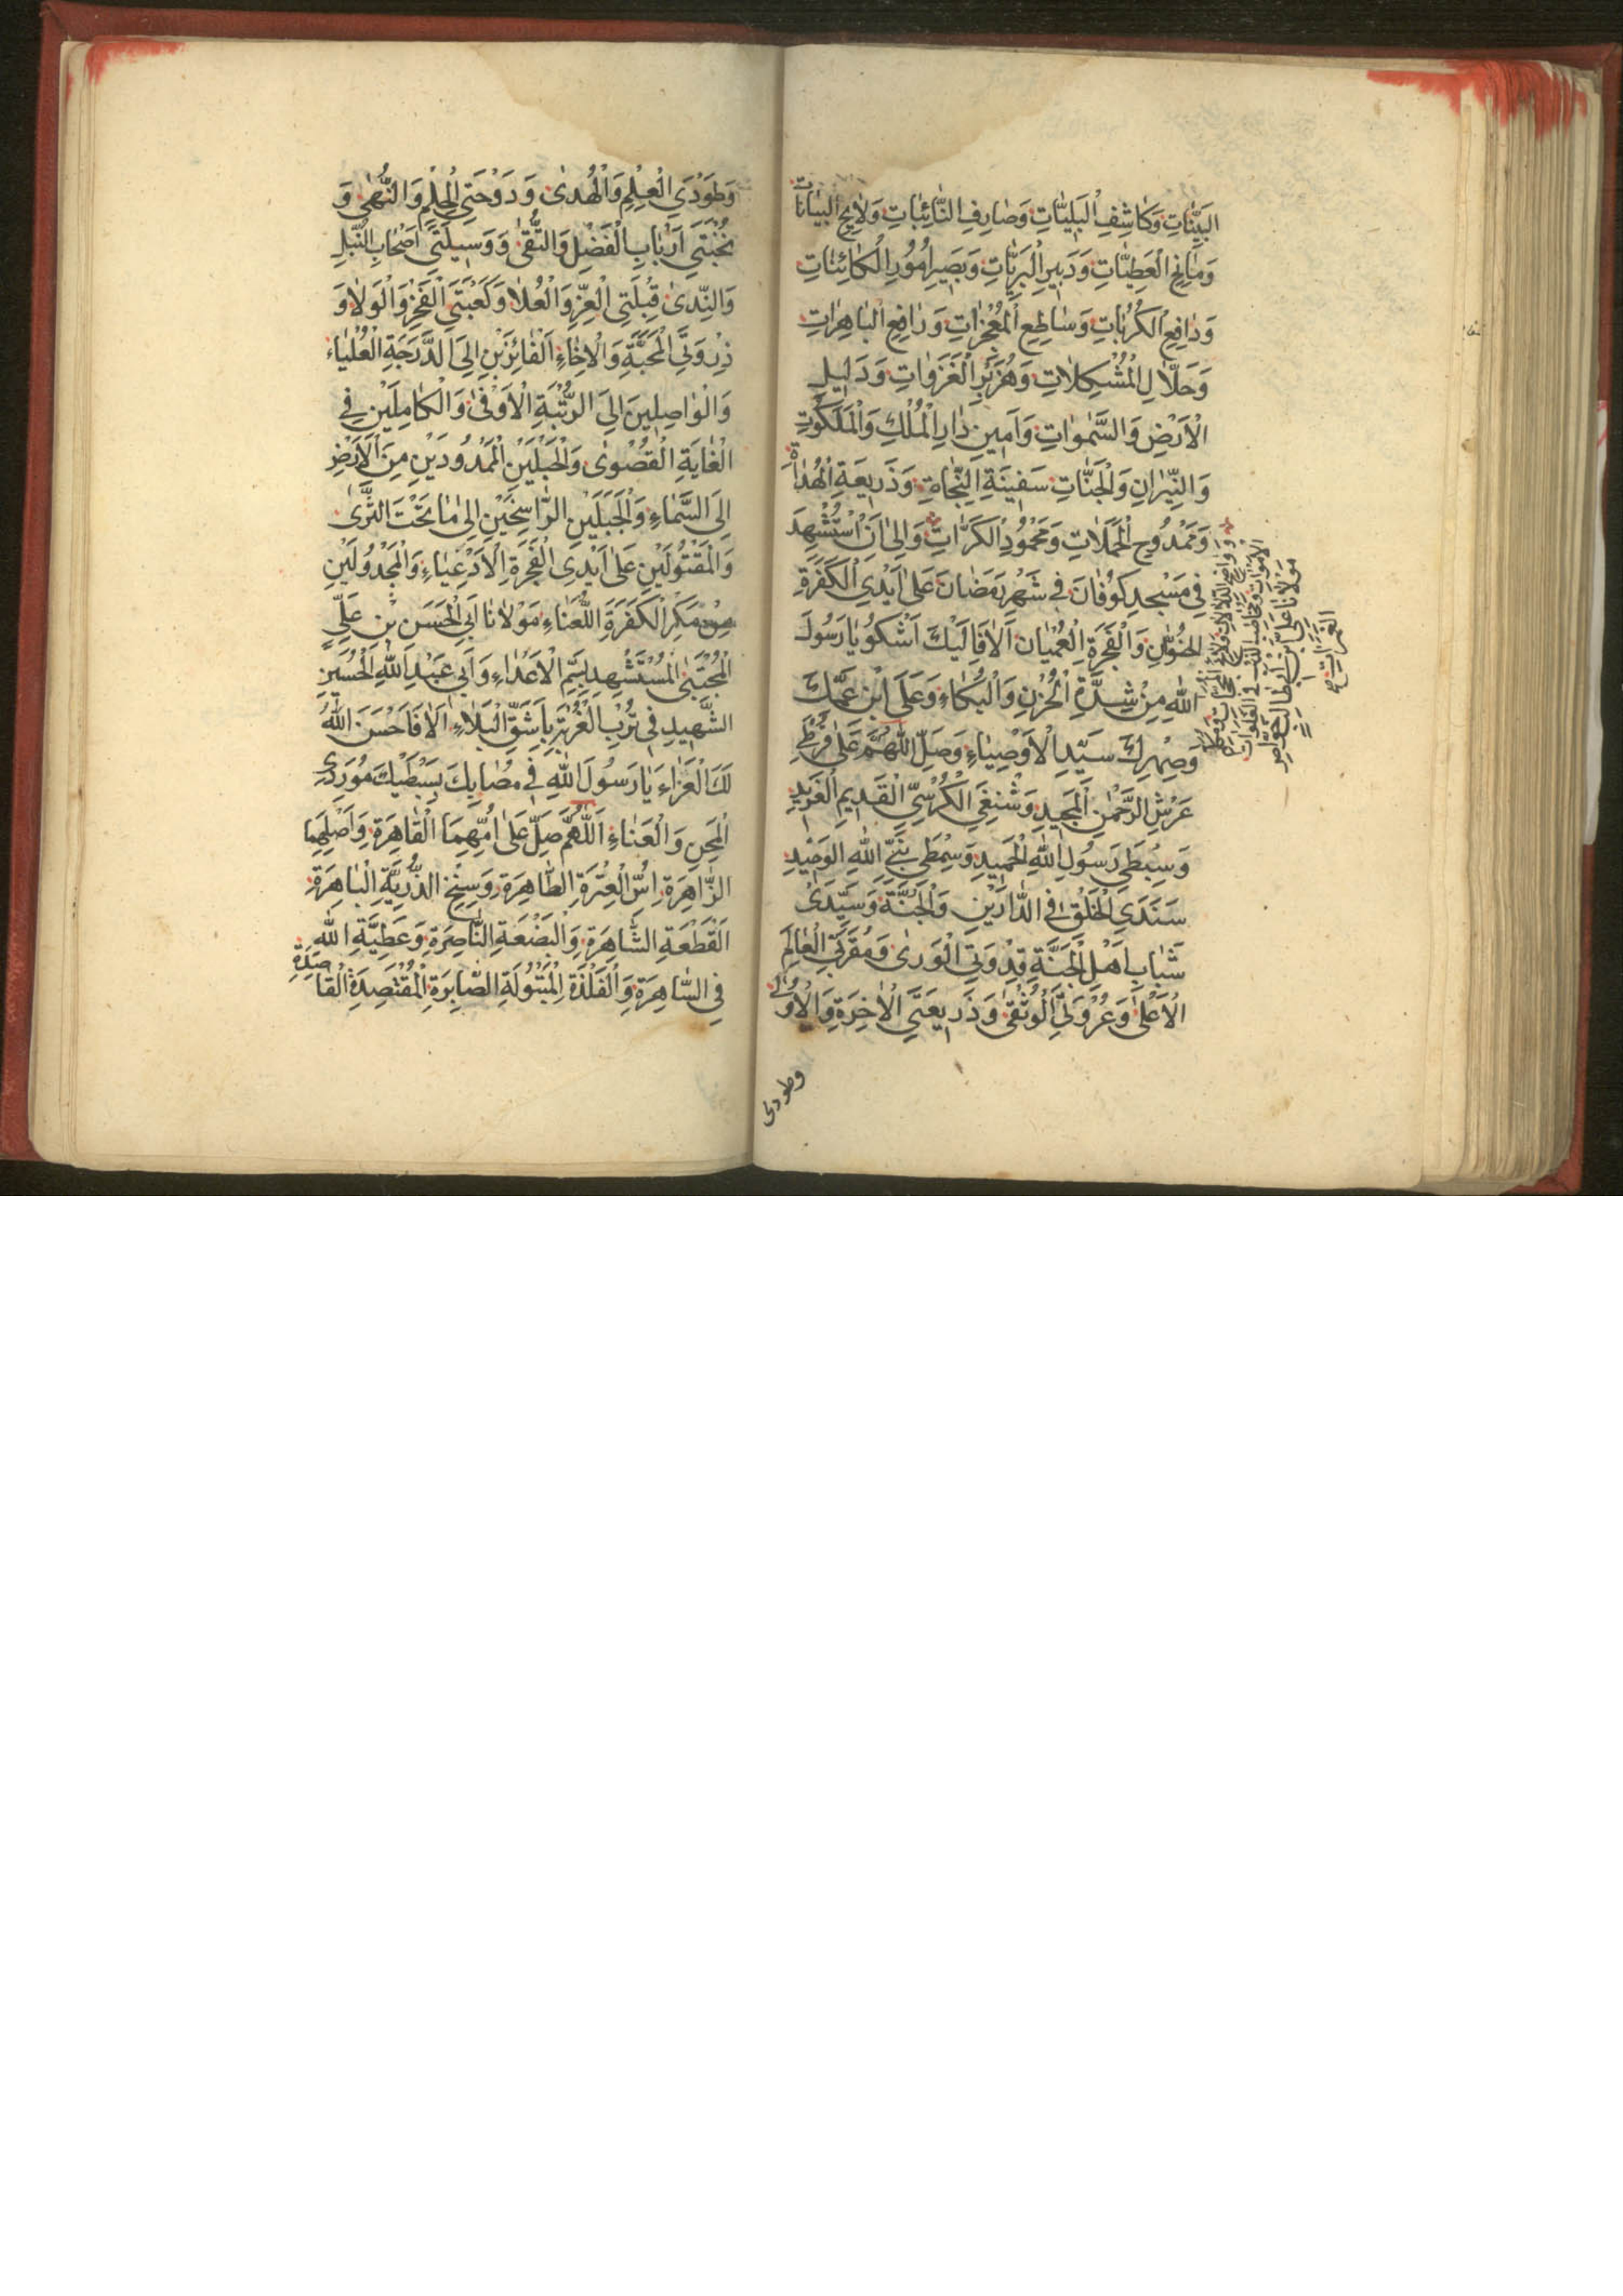 البَيِّنَاتِ وَكَاشِفِ الْبَلِيَّاتِ وَصَارِفِ النَّائِبَاتِ وَلَايِحِ الْبَيَانَاتِ
وَمَانِحِ الْعَطِيَّاتِ وَدَبِيرِ الْبَرِيَّاتِ وَبَصِيرِ اُمُورِ الْكَائِنَاتِ
وَدَافِعِ الْكُرُبَاتِ وَسَاطِعِ الْمُعْجِزَاتِ وَرَافِعِ الْبَاهِرَاتِ
وَحَلَّالِ الْمُشْكِلَاتِ وَهُزَبْرِ الْغَزَوَاتِ وَدَلِيلِ
الْاَرْضِ وَالسَّمٰوَاتِ وَاَمِينِ دَارِ الْمُلْكِ وَالْمَلَكُوتِ
وَالنِّيْرَانِ وَالْجَنَّاتِ سَفِينَةِ النَّجَاةِ وَذَرِيعَةِ الْهُدَاةِ
وَمَمْدُوحِ الْحَمَلَاتِ وَمَحْمُودِ الْكَرَّاتِ وَاِلىٰ اَنْ اسْتُشْهِدَ
فِي مَسْجِدِ كُوفَانَ فِي شَهْرِ رَمَضَانَ عَلىٰ اَيْدِي الْكَفَرَةِ
وَالْفَجَرَةِ الْعُمْيَانِ اَلَا فَاِلَيْكَ اَشْكُو يَا رَسُولَ
اللهِ مِنْ شِدَّةِ الْحُزْنِ وَالْبُكَاءِ وَعَلَى ابْنِ عَمِّكَ
وَصِهْرِكَ سَيِّدِ الْاَوْصِيَاءِ وَصَلِّ اللّٰهُمَّ عَلىٰ قُرْطَيْ
عَرْشِ الرَّحْمٰنِ الْمَجِيدِ وَشَنْفَيِ الْكُرْسِيِّ الْقَدِيمِ
وَسِبْطَيْ رَسُولِ اللهِ الْحَمِيدِ وَسِمْطَيْ نَبِيِّ اللهِ الْوَحِيدِ
سَنَدَيِ الْخَلْقِ فِي الدَّارَيْنِ وَالْجَنَّةِ وَسَيِّدَيْ
شَبَابِ اَهْلِ الْجَنَّةِ قِدْوَتِي الْوَرىٰ وَمُقَرَّبَيِ الْعَالَمِ
الْاَعْلىٰ وَعُرْوَتَيِ الْوُثْقىٰ وَذَرِيعَتَيِ الْاٰخِرَةِ وَالْاُولىٰ
وطودى
مَوْلَانَا عَلِيِّ ابْنِ ابيطالب
وَطَوْدَيِ الْعِلْمِ وَالْهُدىٰ وَدَوْحَتَيِ الْحِلْمِ وَالنُّهىٰ وَ
نُخْبَتَيْ اَرْبَابِ الْفَضْلِ وَالتُّقىٰ وَوَسِيلَتَيْ اَصْحَابِ النُّبْلِ
وَالنَّدىٰ قِبْلَتَيِ الْعِزِّ وَالْعُلَا وَكَعْبَتَيِ الْفَخْرِ وَالْوَلَا وَ
ذِرْوَتَيِ الْمَحَبَّةِ وَالْاِخَاءِ الْفَائِزَيْنِ اِلَى الدَّرَجَةِ الْعُلْيَاءِ
وَالْوَاصِلِينَ اِلَى الرُّتْبَةِ الْاَوْفىٰ وَالْكَامِلَيْنِ فِي
الْغَايَةِ الْقُصْوىٰ وَالْحَبْلَيْنِ الْمَمْدُودَيْنِ مِنَ الْاَرْضِ
اِلَى السَّمَاءِ وَالْجَبَلَيْنِ الرَّاسِخَيْنِ اِلىٰ مَا تَحْتَ الثَّرىٰ
وَالْمَقْتُولَيْنِ عَلىٰ اَيْدِي الْفَجَرَةِ الْاَدْعِيَاءِ وَالْمَجْدُولَيْنِ
مِنْ مَكْرِ الْكَفَرَةِ اللُّعَنَاءِ مَوْلَانَا اَبِي الْحَسَنِ بْنِ عَلِيٍّ
الْمُجْتَبىٰ الْمُسْتَشْهِدِ بِسَمِّ الْاَعْدَاءِ وَاَبِي عَبْدِ اللهِ الْحُسَيْنِ
الشَّهِيدِ فِي تُرْبِ الْغُرْبَةِ بِاَشَقِّ الْبَلَاءِ اَلَا فَاَحْسَنَ اللهُ
لَكَ الْعَزَاءَ يَا رَسُولَ اللهِ فِي مَصَابِكَ بِسِبْطَيْكَ مُوَرَّدَيِ
الْمِحَنِ وَالْعَنَاءِ اَللّٰهُمَّ صَلِّ عَلىٰ اُمِّهِمَا الْقَاهِرَةِ وَاَصْلِهِمَا
الزَّاهِرَةِ اُسِّ الْعِتْرَةِ الطَّاهِرَةِ وَسِنْخِ الذُّرِّيَّةِ الْبَاهِرَةِ
الْقَطْعَةِ الشَّاهِرَةِ وَالْبَضْعَةِ النَّاصِرَةِ وَعَطِيَّةِ اللهِ
فِي السَّاهِرَةِ وَالْفَلْذَةِ الْبَتُولَةِ الصَّابِرَةِ الْمُقْتَصِدَةِ الْقَاصِدَةِ